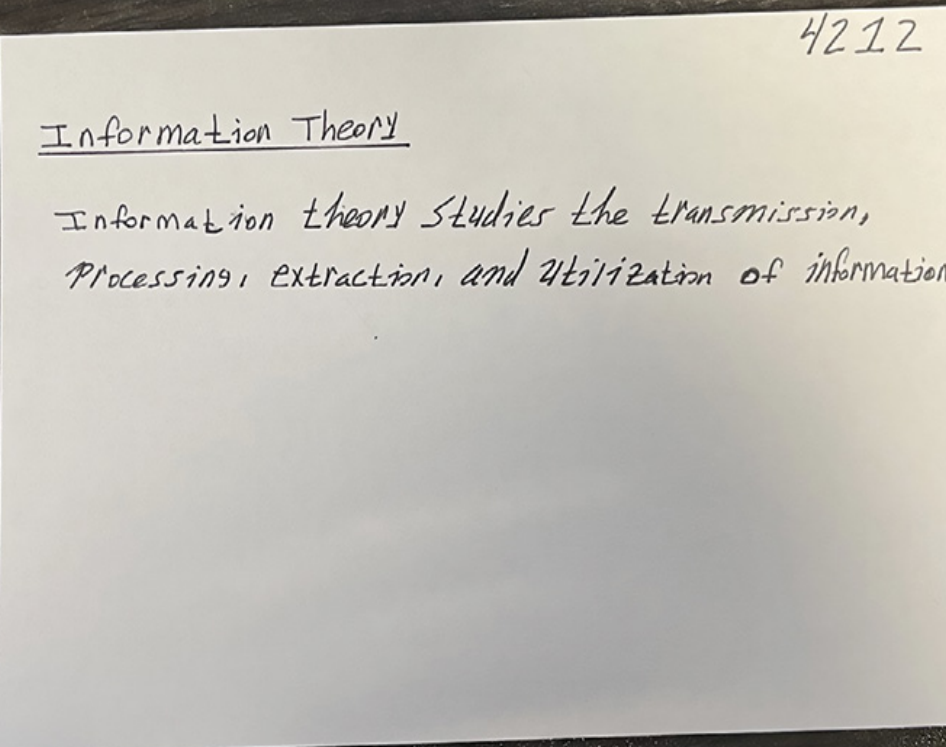 4212
Information Theory
Information theory studies the transmission,
Processing, extraction, and utilization of information